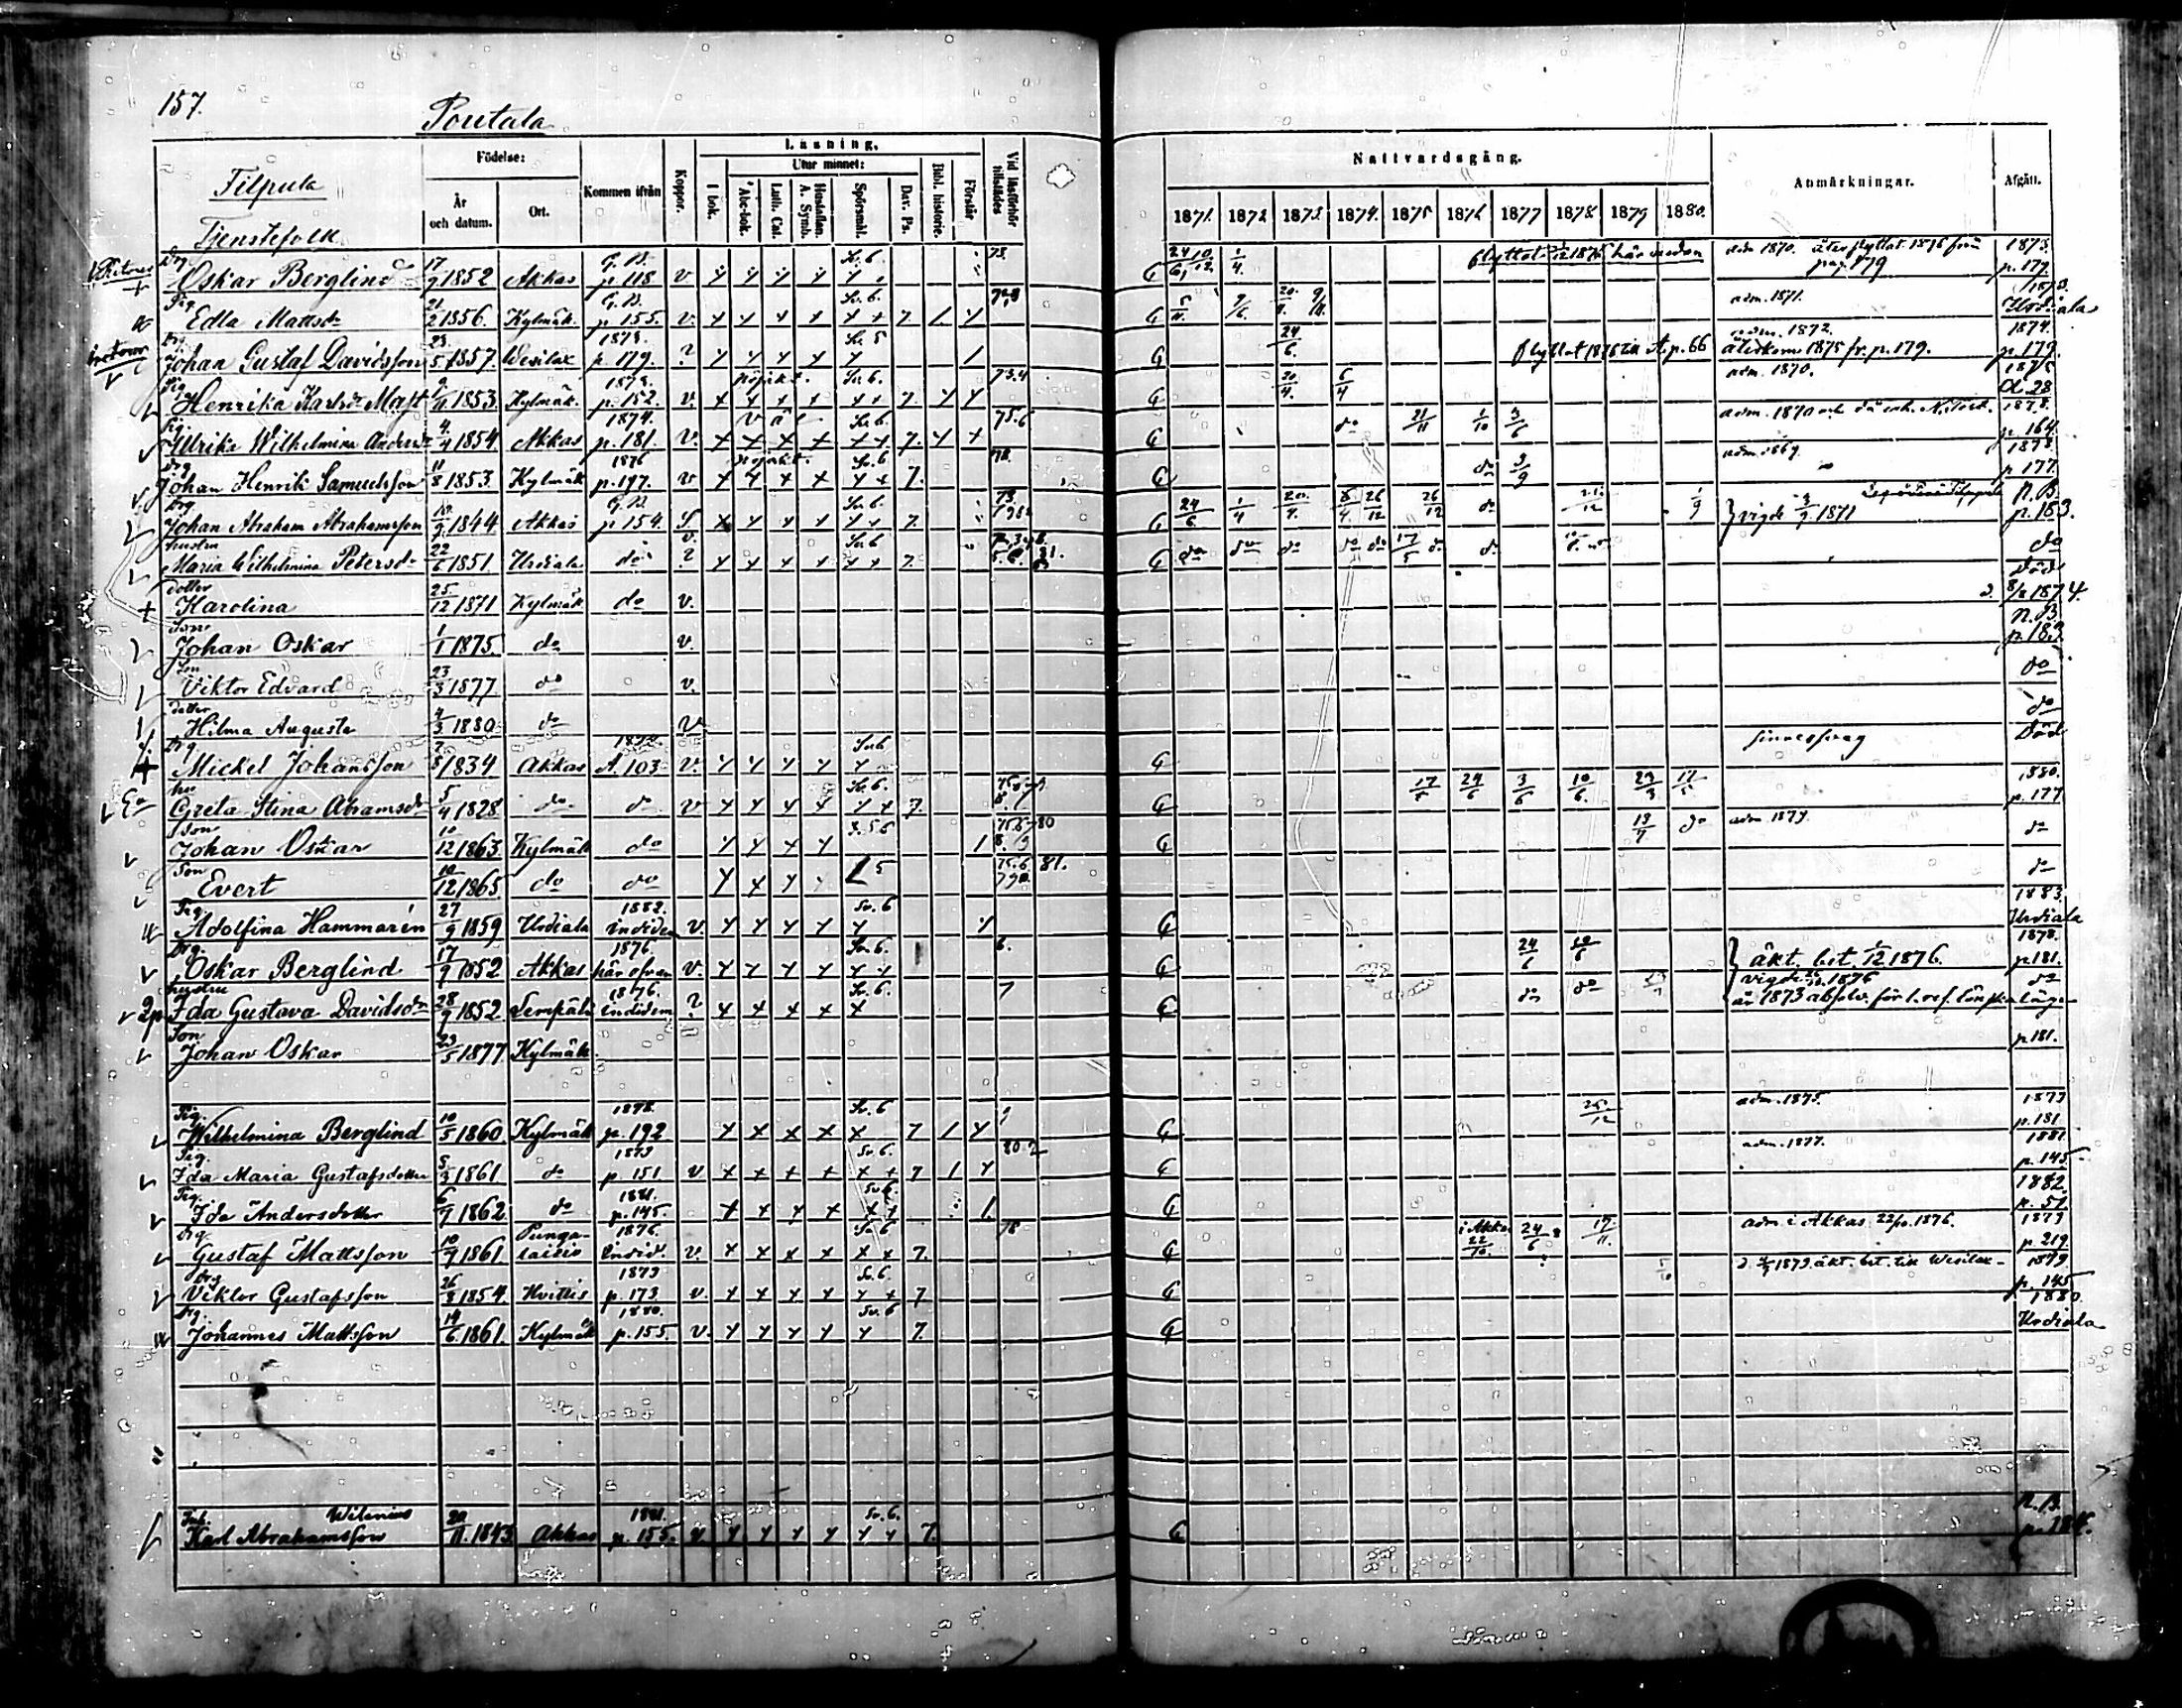 157.
Poutala
Tilpula
Tjenstefolk
Födelse:
År och datum.
Ort.
Kommen ifrån
Koppor.
Läsning.
I bok.
Utur minnet:
Abc-bok.
Luth. Cat.
Hustaflan. A. Symb.
Spörsmål.
Dav. Ps.
Bibl. historie.
Förstår
Vid läsförhör tillstädes
Nattvardsgång.
1871. 1872 1873 1874. 1875 1876 1877 1878 1879 1880.
Anmärkningar.
Afgått.
Drg Oskar Berglind 17/9 1852 Akkas G. B. p. 118 v. Sv. 6. 73. G 24/6 10/12 1/4 flyttat 1/12 1875 här nedan adm 1870. åter flyttat 1876 från pag. 179 1873 p. 179.
Pig. Edla Mattsdr 21/2 1856. Kylmäk. G. B. p. 155. v. Sv. 6. 7. G adm. 1871. Urdiala
Drg Johan Gustaf Davidsson 23/5 1857. Wesilax 1873. p. 179. ? Sv. 5 G 24/6. flyttat 1876 till A. p. 66 adm. 1872. återkom 1875 fr. p. 179. 1874. p. 179.
Pig Henrika Karlsdr Mast 9/11 1853. Kylmäk. 1873. p. 152. v. Sv. 6. 7 73.4 G 20/4. 5/4 adm. 1870. 1875 A. 28
Pig. Ulrika Wilhelmina Andersdr 4/4 1854 Akkas 1874. p. 181. v. Sv. 6. 7. 75.6 G do 21/11 1/10 3/6 1878. p. 164.
Drg Johan Henrik Samuelsson 11/8 1853. Kylmäk 1876 p. 197. v Sv. 6 7. 78. G do 9/9 adm. 1869. 1878 p 177.
Drg. Johan Abraham Abrahamsson 1844 Akkas G. B. p 154. S. Sv. 6. 7. 73. G 24/6. 1/4 26/12 26/12 do 1/9 vigde 3/9 1871 N. B. p. 183.
hustru Maria Wilhelmina Petersdr 22/6 1851. Urdiala do ? Sv. 6 7. 81. G do do do do do 17/5 do do do
dotter Karolina 25/12 1871 Kylmäk do v. död d. 8/8 1874.
Son Johan Oskar 1/1 1875. do v. N. B. p. 183.
Son Viktor Edvard 23/3 1877 do v. do
dotter Hilma Augusta 4/3 1880 do v do
Drg Mickel Johansson 1834 Akkas A. 103 v. Sv. 6 G sinnessvag Död
hu Greta Stina Abramsdr 5/4 1828 do do v Sv. 6. 7. G 17/5 24/6 3/6 10/6. 23/3 17/5 1880. p. 177
Son Johan Oskar 10/12 1863 Kylmäk do 75.6 80 G 13/7 do adm. 1879. do
Son Evert 10/12 1865 do do 5 75.6 81. do
Pig. Adolfina Hammarén 27/9 1859 Urdiala 1882. indidem v. Sv. 6 G 1883. Urdiala
Drg. Oskar Berglind 17/9 1852 Akkas 1876. här ofvan v. Sv. 6. 6. G 24/6 10/6 äkt. bet. 1/12 1876. 1878. p181.
hustru Ida Gustava Davidsdr 28/9 1852. Lempälä 1876. indidem ? Sv. 6. 7 G do do vigde 1876 är 1873 absolv. för l. ref. lönskaläge do
Son Johan Oskar 23/5 1877 Kylmäk. p. 181.
Pig. Wilhelmina Berglind 10/5 1860 Kylmäk 1878. p. 192 Sv. 6 7 G 26/12 adm. 1875. 1879 p. 181
Pig. Ida Maria Gustafsdotter 5/3 1861. do 1879 p. 151. v. Sv. 6. 7 80.2 G adm. 1877. 1881. p. 145
Pig. Ida Andersdotter 6/9 1862. do 1881. p. 145. Sv. 6. G 1882 p. 57.
Drg. Gustaf Mattsson 10/9 1861. Pungalaitio 1876. indid. v. Sv. 6 7. 78 G i Akkas 22/10. 24/6 17/11. adm. i Akkas 22/10. 1876. 1879 p. 219.
Drg Viktor Gustafsson 26/8 1854. Hvittis 1879 p. 173 v. Sv. 6. 7 G 1879. äkt. bet. till Wesilax 1879 p. 145
Drg. Johannes Mattsson 14/6 1861. Kylmäk 1880. p. 155. v. Sv. 6 7. G 1880. Urdiala
Inh. Wilenius
Karl Abrahamsson 20/11. 1843 Akkas 1881. p. 155. v. Sv. 6. 7. G N. B.